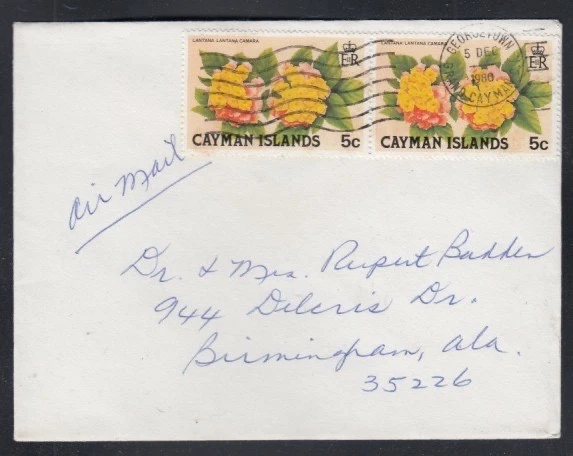 LANTANA - LANTANA CAMARA
E II R
CAYMAN ISLANDS 5c
LANTANA - LANTANA CAMARA
E II R
CAYMAN ISLANDS 5c
GEORGETOWN
5 DEC
1980
GRAND CAYMAN
Air Mail
Dr. & Mrs. Rupert Badden
944 Delcris Dr.
Birmingham, Ala.
35226